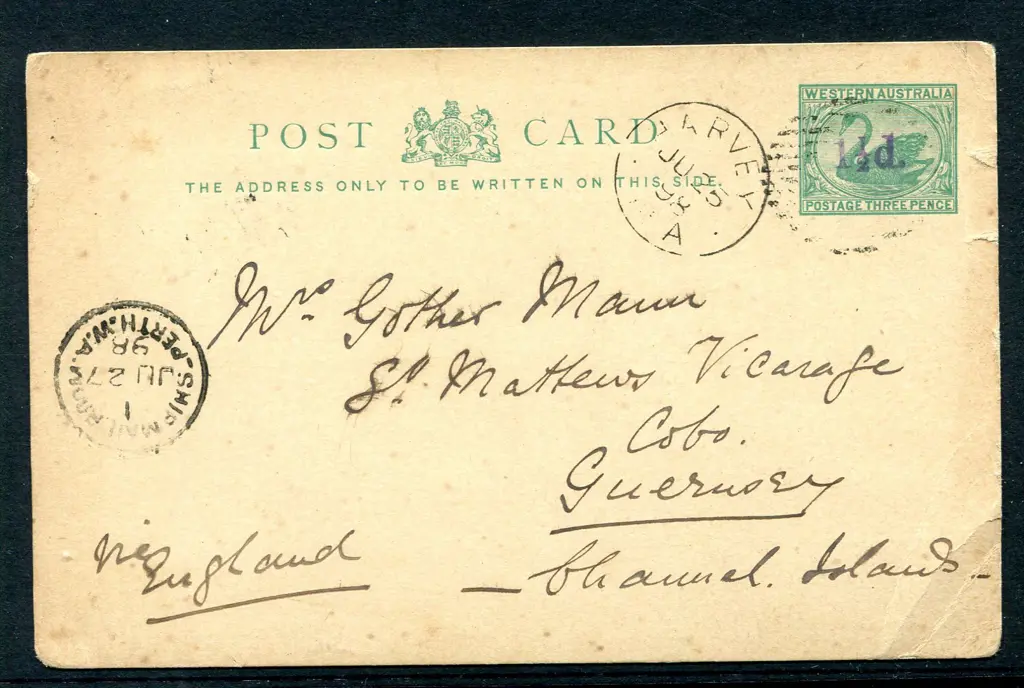 POST CARD
THE ADDRESS ONLY TO BE WRITTEN ON THIS SIDE.
WESTERN AUSTRALIA
1½d.
POSTAGE THREE PENCE
HARVEY
JU 25
98
WA
Mrs Gother Mann
St. Mathews Vicarage
Cobo.
Guernsey
Channel. Islands
via England
SHIP MAIL ROOM - PERTH. W.A.
1
JU 27
98